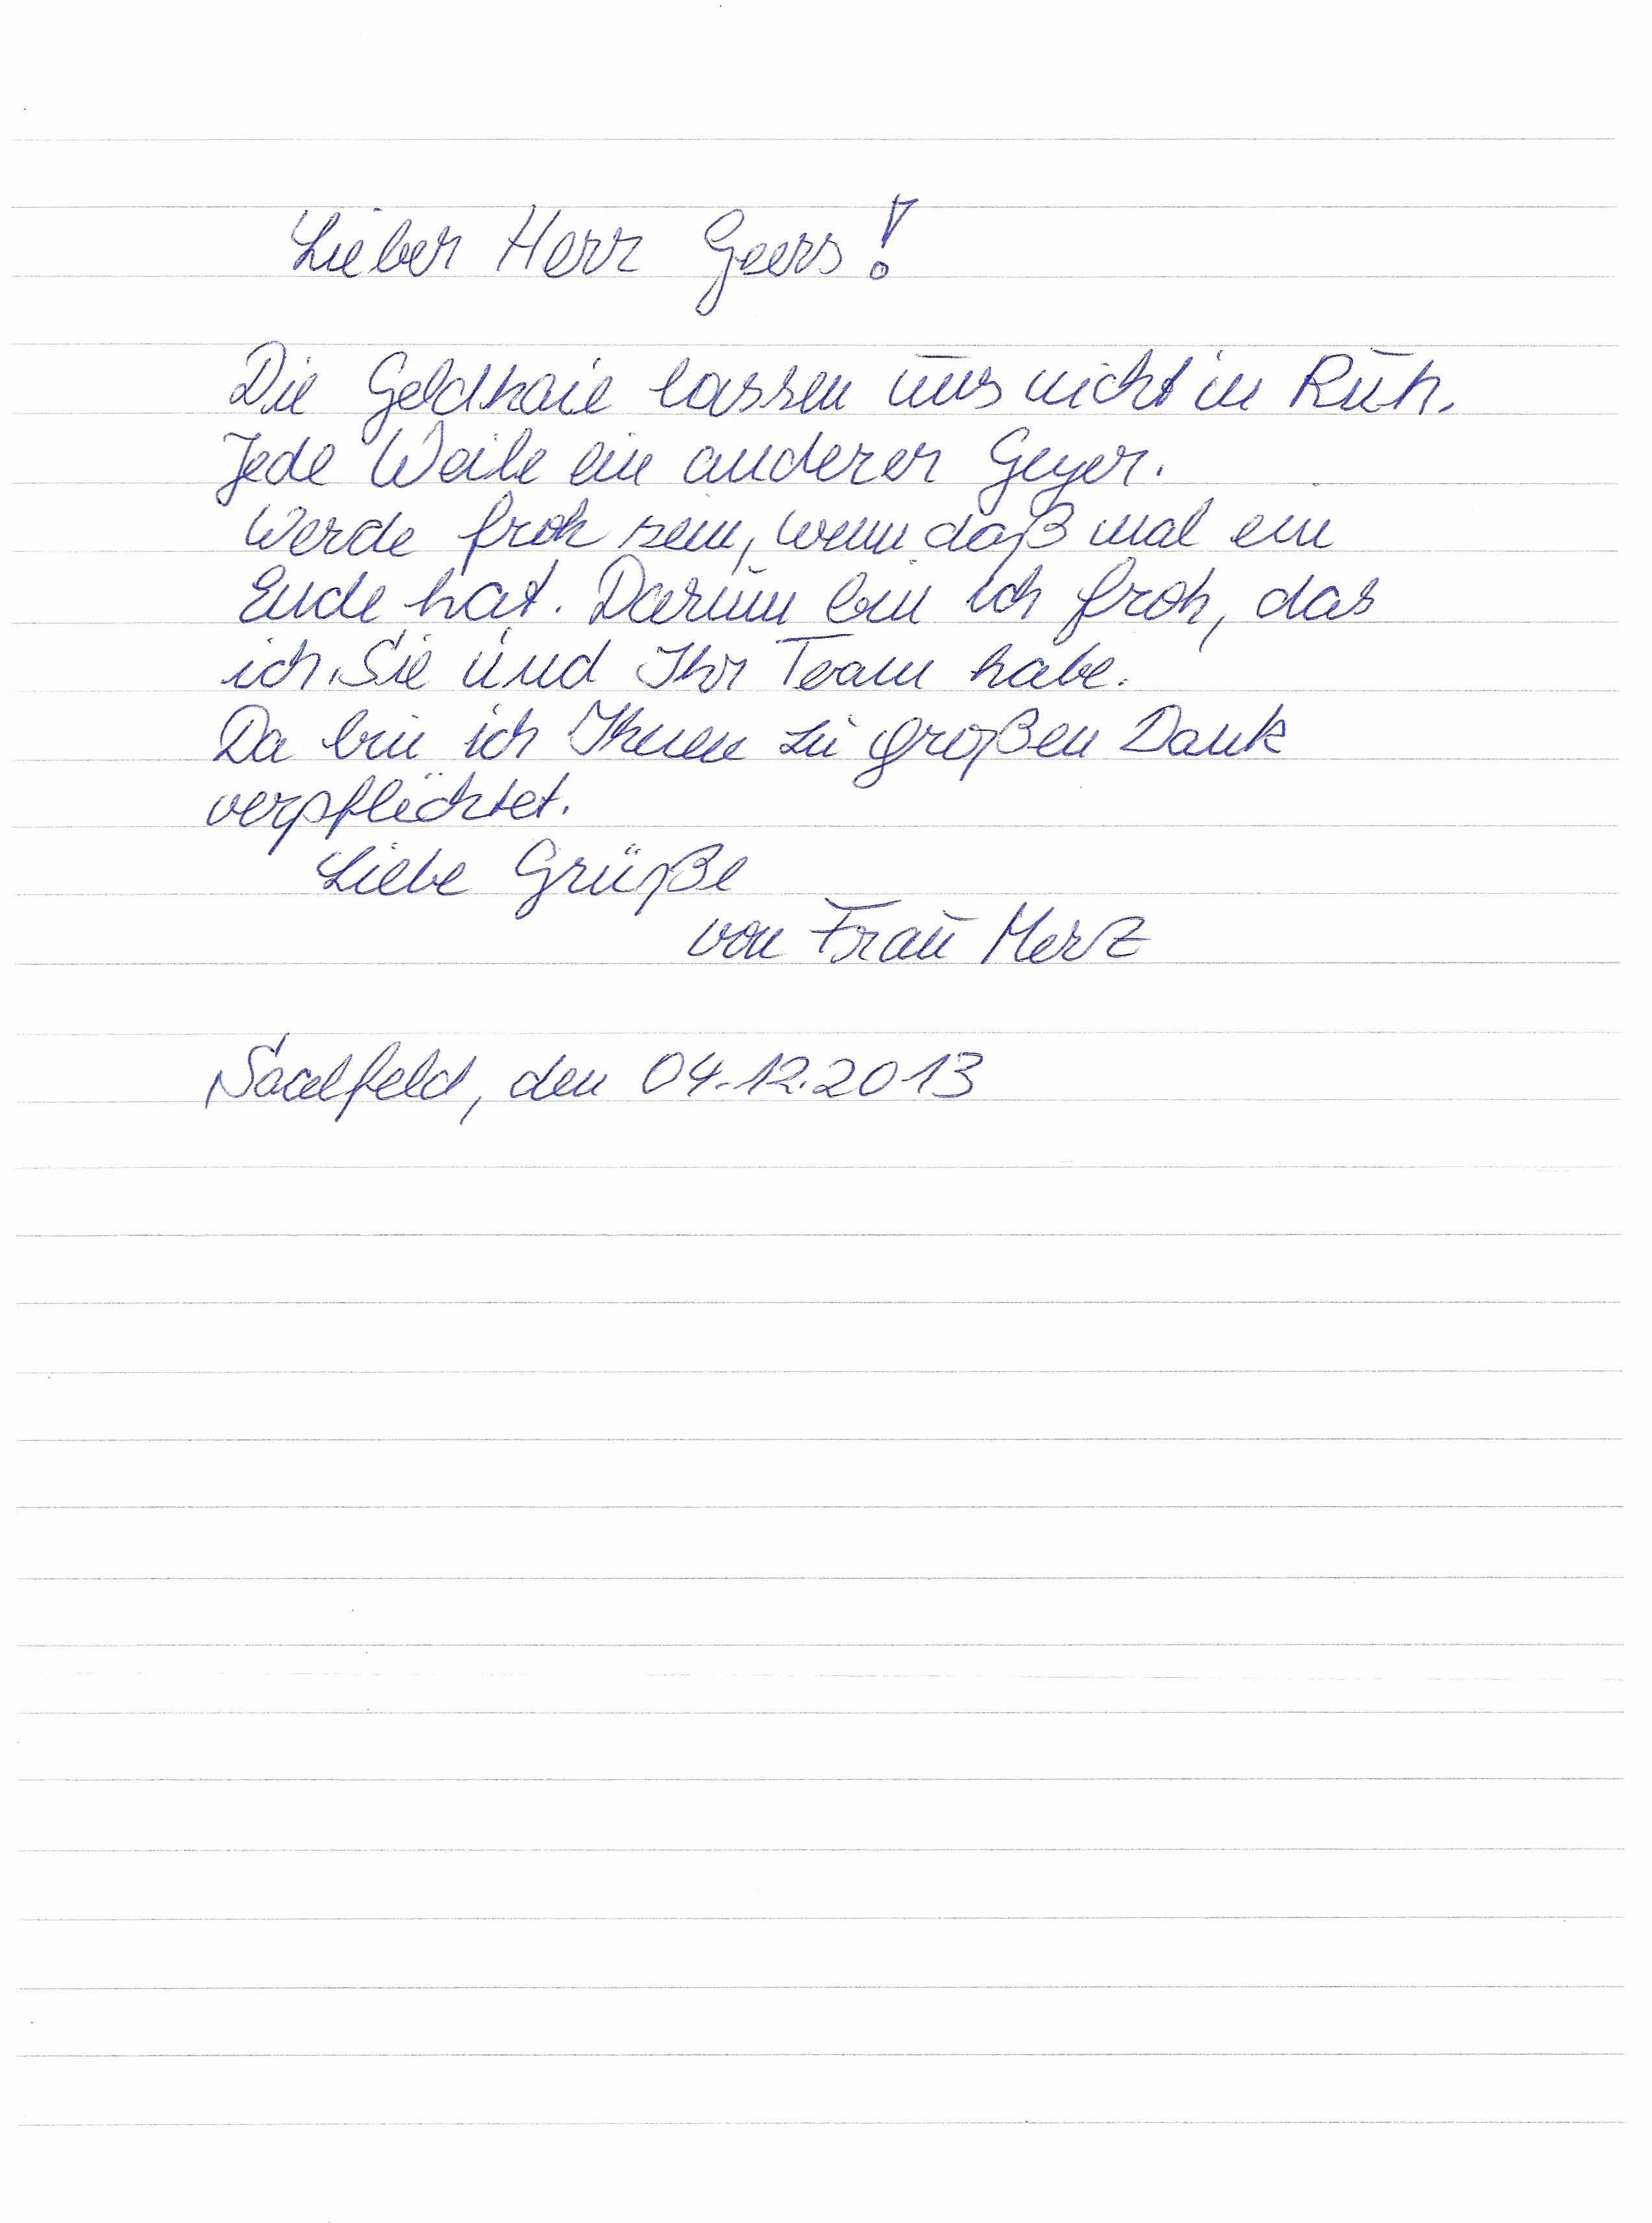 Lieber Herr Geers!
Die Geldhaie lassen uns nicht in Ruh.
Jede Weile ein anderer Geyer.
Werde froh sein, wenn daß mal ein
Ende hat. Darum bin ich froh, das
ich Sie und Ihr Team habe.
Da bin ich Ihnen zu großen Dank
verpflichtet.
Liebe Grüße
von Frau Merz
Saalfeld, den 04.12.2013